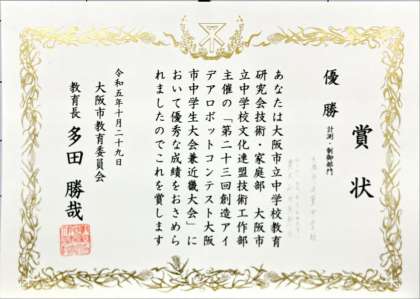 賞状
優勝
計測・制御部門
あなたは大阪市立中学校教育
研究会技術・家庭部　大阪市
立中学校文化連盟技術工作部
主催の「第二十三回創造アイ
デアロボットコンテスト大阪
市中学生大会兼近畿大会」に
おいて優秀な成績をおさめら
れましたのでこれを賞します
令和五年十月二十九日
大阪市教育委員会
教育長　多田勝哉